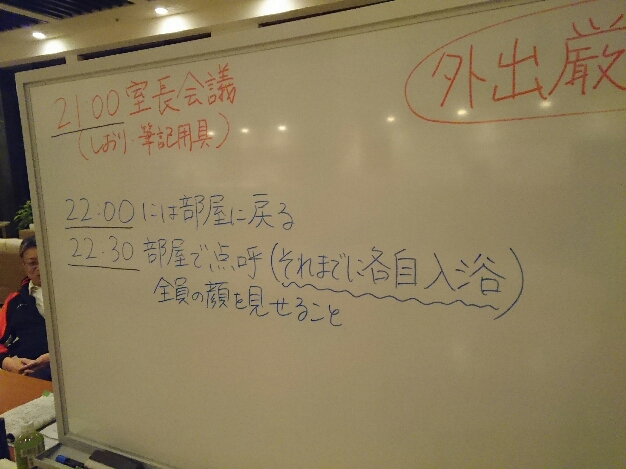 外出厳
21:00 室長会議
(しおり・筆記用具)
22:00 には部屋に戻る
22:30 部屋で点呼(それまでに各自入浴)
全員の顔を見せること